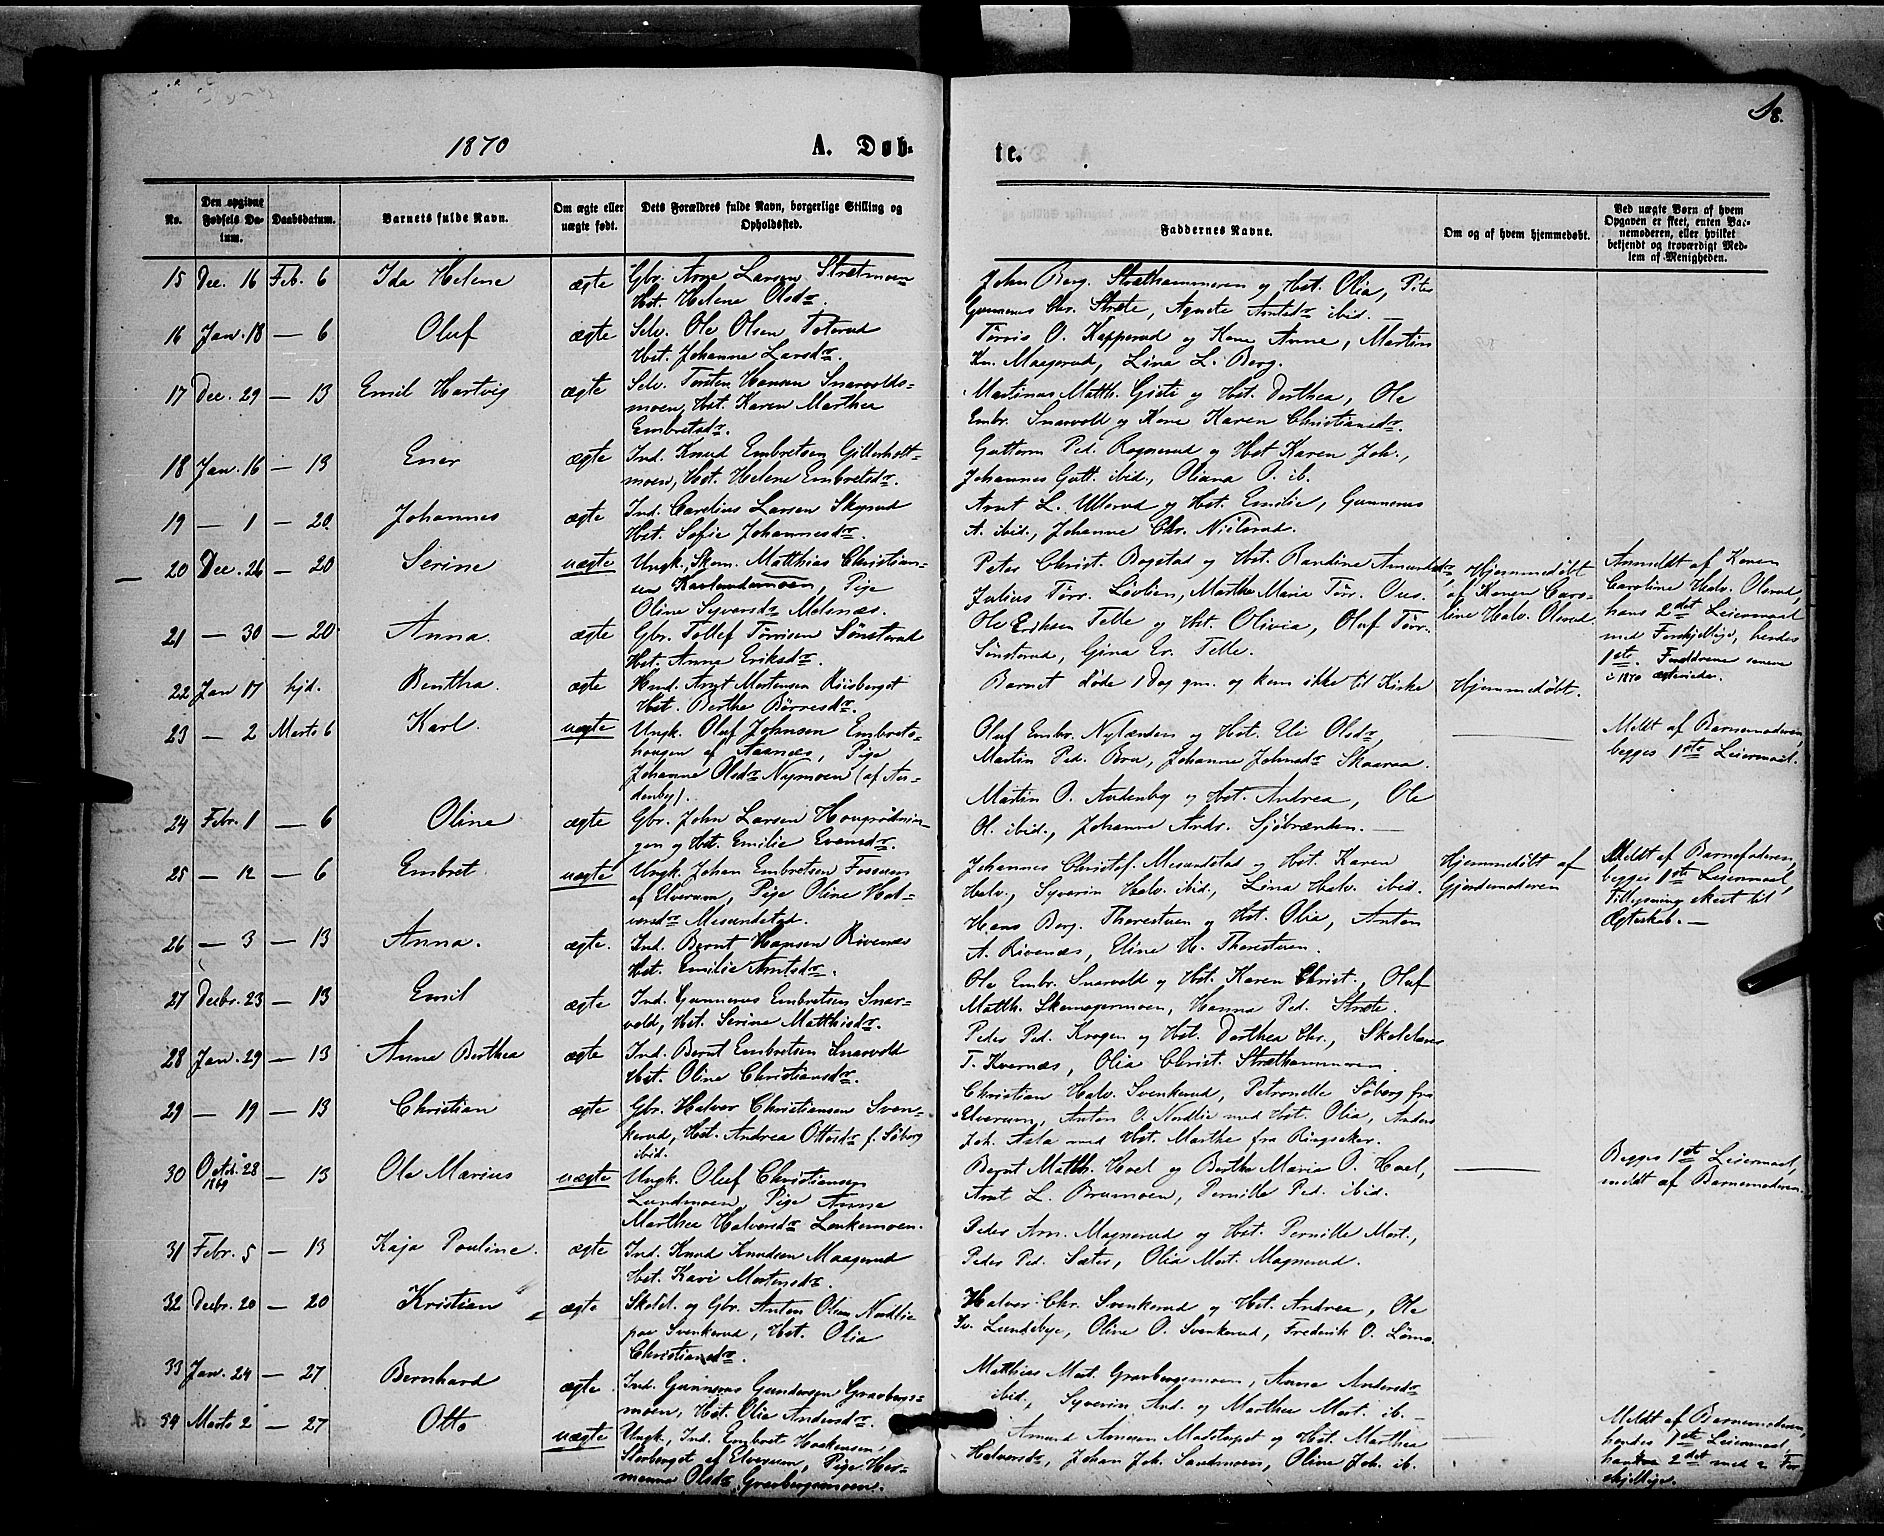 8.
1870
A. Døb-
te.
No.
Den opgivne Fødsels Da-tum.
Daabsdatum.
Barnets fulde Navn.
Om ægte eller uægte født.
Dets Forældres fulde Navn, borgerlige Stilling og Opholdssted.
Faddernes Navne.
Om og af hvem hjemmedøbt.
Ved uægte Børn af hvem Opgaven er skeet, enten Bar-nemoderen, eller hvilket bekjendt og troværdigt Med-lem af Menigheden.
15 Dec. 16 Feb. 6 Ida Helene ægte Gbr. Arne Larsen Strætmoen
Hst. Helene Olsdr.
John Berg. Stræthammeren og Hst. Olia, Peter
Gunnerus Chr. Stræte, Agnete Arntsdr ibid. —
16 Jan. 18 — 6 Oluf ægte Selv. Ole Olsen
Hst. Johanne Larsdr.
Tørris O. Kapperud og Kone Anne, Martin
Kn. Maagerud, Lina L. Berg.
17 Dec. 29 — 13 Emil Hartvig ægte Selv. Torsten Hansen Snarvolds-
moen, Hst. Karen Marthea
Embretsdr.
Martinus Matth. Gjeti og Hst. Dorthea, Ole
Embr. Snarvold og Kone Karen Christiansdr.
18 Jan. 16 — 13 Ener ægte Ind. Knud Embretsen Gitterholt-
moen, Hst. Helene Embretsdr.
Guttorm Ped. Rognerud og Hst Karen Joh.,
Johannes Gutt. ibid., Oliana O. ib.
19 — 1 — 20. Johannes ægte Ind. Carelius Larsen Skyrud
Hst. Sofie Johannesdr.
Arnt L. Ullerud og Hst. Emilie, Gunnerus
A. ibid., Johanne Chr. Nilsrud.
20 Dec. 26 — 20 Serine uægte Ungk. Skom. Matthias Christian-
sen, Pige
Oline Syversdr Melsnæs.
Peter Christ. Bogstad og Hst. Randine Amundsdr,
Julius Tørr. Løvlien, Marthe Maria Tørr. Ous.
Hjemmedøbt
af Konen Caro-
line Halv. Olsrud
Anmeldt af Konen
Caroline Halv. Olsrud,
hans 2det Leiermaal
med Forskjellige, hendes
1ste. Forældrene senere
i 1870 ægteviede.
21 — 30 — 20 Anna. ægte Gbr. Tollef Tørrisen Sønsterud
Hst. Anna Eriksdr.
Ole Eriksen Telle og Hst. Olivia, Oluf Tørr.
Sønsterud, Gina Er. Telle.
22 Jan 17 hjd. Benthe. ægte Hmd. Arnt Mortensen Riisberget
Hst. Berthe Børresdr.
Barnet døde 1 Dag gm. og kom ikke til Kirke
Hjemmedøbt.
23 — 2 Marts 6 Karl. uægte Ungk. Oluf Johnsen Embrets-
haugen af Aasnæs, Pige
Johanne Olsdr Nymoen (af An-
denby).
Oluf Embr. Nylænden og Hst. Eli Olsdr,
Martin Ped. Bru, Johanne Johnsdr Skaaraa.
Meldt af Barnemoderen,
begges 1ste Leiermaal.
24 Febr. 1 — 6 Oline ægte Gbr. John Larsen Haugrødnin-
gen og Hst. Emilie Evensdr.
Martin O. Andenby og Hst. Andrea, Ole
O. ibid., Johanne Andr. Sjøbrænden. —
25 — 12 — 6 Embret uægte Ungk. Johan Embretsen Fossum
af Elverum, Pige Oline Hal-
vorsdr Mesundstad.
Johannes Christof. Mesundstad og Hst. Karen
Halv., Syverin Halv. ibid., Lina Halv. ibid.
Hjemmedøbt af
Gjordemoderen
Meldt af Barnefaderen,
begges 1ste Leiermaal,
Tillysning skeet til
Ægteskab. —
26 — 3 — 13 Anna. ægte. Ind. Bernt Hansen Rivenæs
Hst. Emilie Arntsdr.
Hans Berg. Thorestuen og Hst. Olia, Anton
A. Rivenæs, Eline H. Thorestuen.
27 Decbr. 23 — 13 Emil ægte Ind. Gunnerus Embretsen Snar-
vold, Hst. Serine Matthisdr.
Ole Embr. Snarvold og Hst. Karen Christ., Oluf
Matth. Skomagermoen, Hanna Ped. Stræte.
28 Jan. 29 — 13 Anna Berthea ægte Ind. Bernt Embretsen Snarvold
Hst. Oline Christiansdr.
Peder Ped. Krogen og Hst. Dorthea Chr.,
T. Kvernæs, Olia Christ. Stræthammeren.
29 — 19 — 13 Christian ægte Gbr. Halvor Christiansen Sven-
kerud, Hst. Andrea Ottosdr f. Søberg
ibid.
Christian Halv. Svenkerud, Petronelle Søberg fra
Elverum, Anton O. Nordlie med Hst. Olia, Anders
Joh. Asla med Hst. Marthe fra Ringsaker.
30 Octbr. 28
1869 — 13 Ole Marius uægte Ungk. Oluf Christiansen
Lundmoen, Pige Anne
Marthea Halvorsdr Lønkemoen.
Bernt Matth. Hoel og Berthe Maria O. Hoel,
Arnt L. Brumoen, Pernille Ped. ibid.
Begges 1ste Leiermaal,
meldt af Barnemoderen.
31 Febr. 5 — 13 Kaja Pauline. ægte Ind. Knud Knudsen Maagerud
Hst. Kari Mortensdr.
Peder Arn. Magnerud og Hst. Pernille Mort.,
Peder Ped. Sæter, Olia Mort. Magnerud.
32 Decbr. 20 — 20 Kristian ægte Skolel. og Gbr. Anton Olsen Nordlie
paa Svenkerud, Hst. Olia
Christiansdr.
Halvor Chr. Svenkerud og Hst. Andrea, Ole
Sv. Lundebye, Oline O. Svenkerud, Frederik O.
33 Jan. 24 — 27 Bernhard ægte Ind. Gunnerus Gundersen Gravbergs-
moen, Hst. Olia Andersdr.
Matthias Mort. Gravbergsmoen, Anne Andersdr
ibid., Syverin And. og Marthea Mort. ib. —
34 Marts 2 — 27 Otto uægte Ungk., Ind. Embret Haakensen
Storberget af Elverum, Pige Her-
menna Olsdr, Gravbergsmoen.
Amund Arnesen Madstuget og Hst. Marthea
Halvorsdr, Johan Joh. Sandmoen, Oline Joh. ib.
Meldt af Barnemoderen,
hendes 1ste Leiermaal,
hans 2det med 2 For-
skjellige.